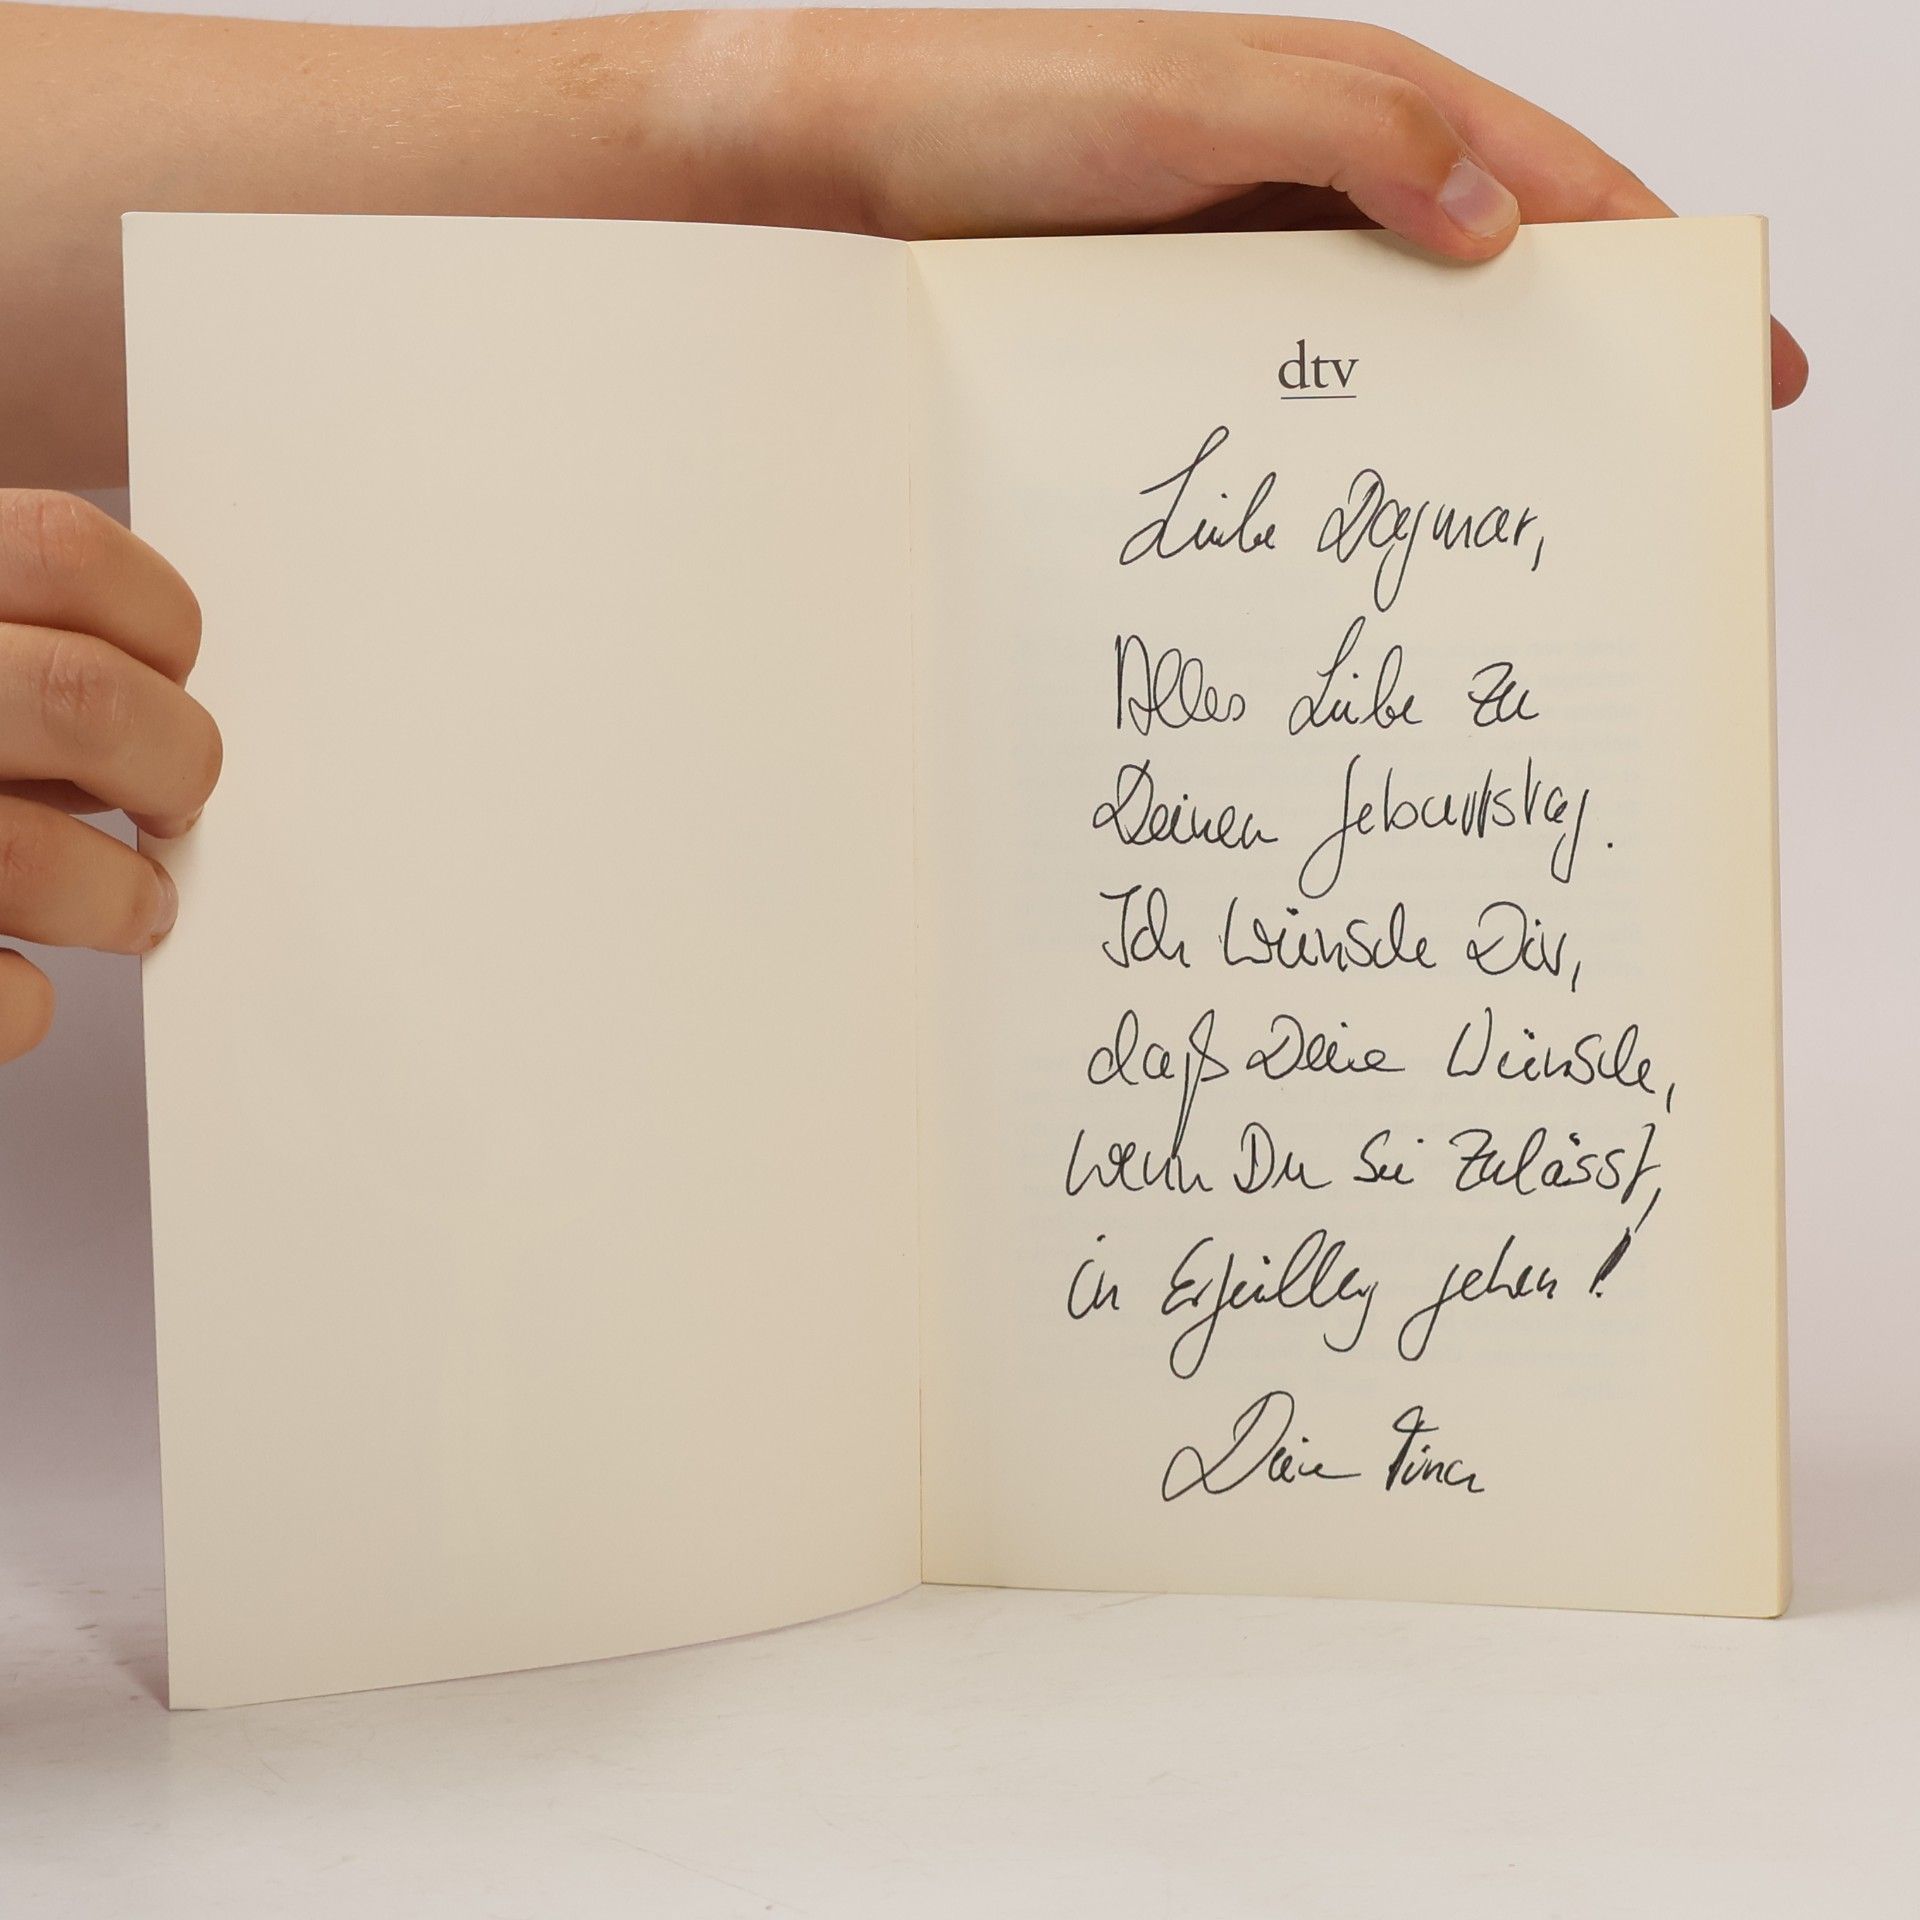 dtv
Liebe Dagmar,
Alles Liebe zu
Deinem Geburtstag.
Ich wünsche Dir,
daß Deine Wünsche,
wenn Du sie zulässt,
in Erfüllung gehen!
Deine Tina